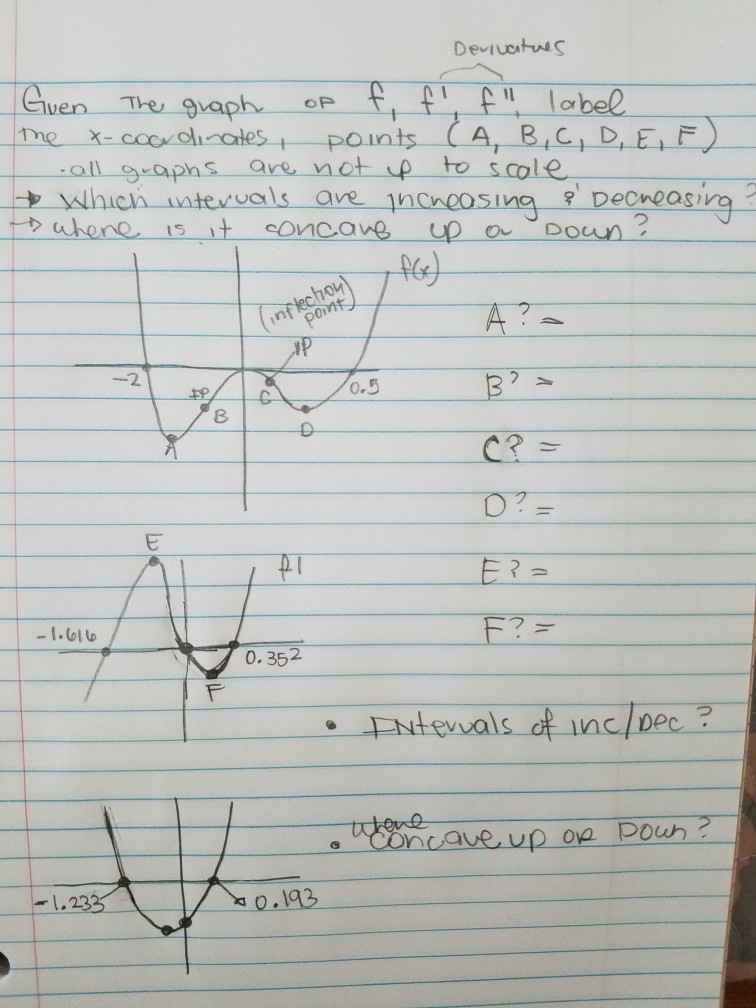 Derivatives
Given The graph of f, f', f'', label
the x-coordinates, points (A, B, C, D, E, F)
·all graphs are not up to scale
→ Which intervals are increasing & Decreasing?
→ where is it concave up or Down?
f(x)
(inflection point)
IP
-2
IP
B
C
0.5
A
D
A? =
B? =
C? =
D? =
E? =
F? =
E
f'
-1.616
0.352
F
• INtervals of inc/Dec?
• where concave up or Down?
-1.233
0.193